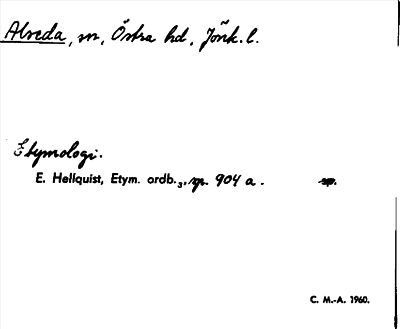 Alseda, sn, Östra hd, Jönk. l.
Etymologi.
E. Hellquist, Etym. ordb.₃, sp. 904 a.
C. M.-A. 1960.